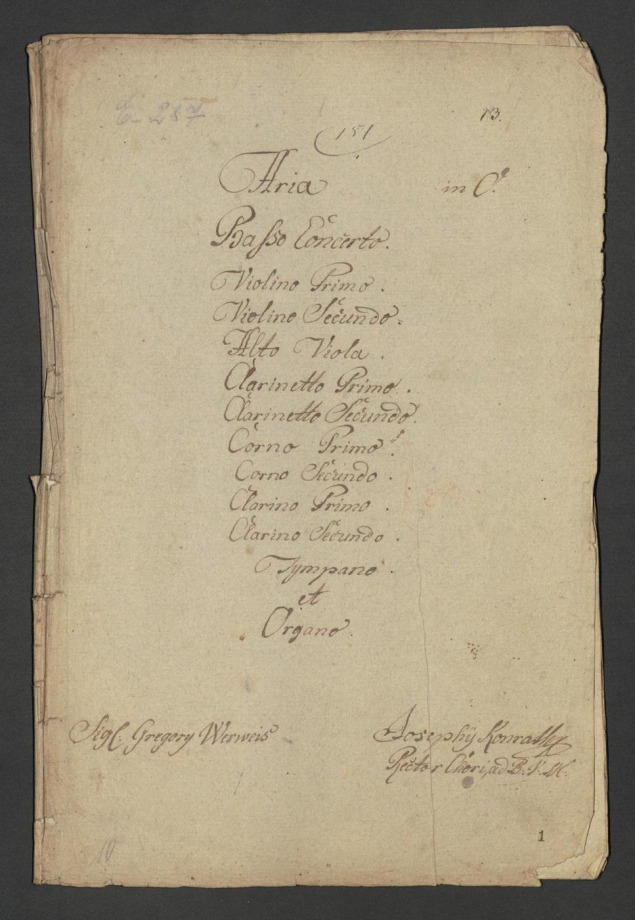 E. 257
73.
151
Aria in C.
Basso Concerto.
Violino Primo.
Violino Secundo.
Alto Viola.
Clarinetto Primo.
Clarinetto Secundo.
Corno Primo.
Corno Secundo.
Clarino Primo.
Clarino Secundo.
Tympano.
et
Organo.
Sigl. Gregory Werweis
Josephÿ Konrath
Rector Chori, ad B. V. M.
1